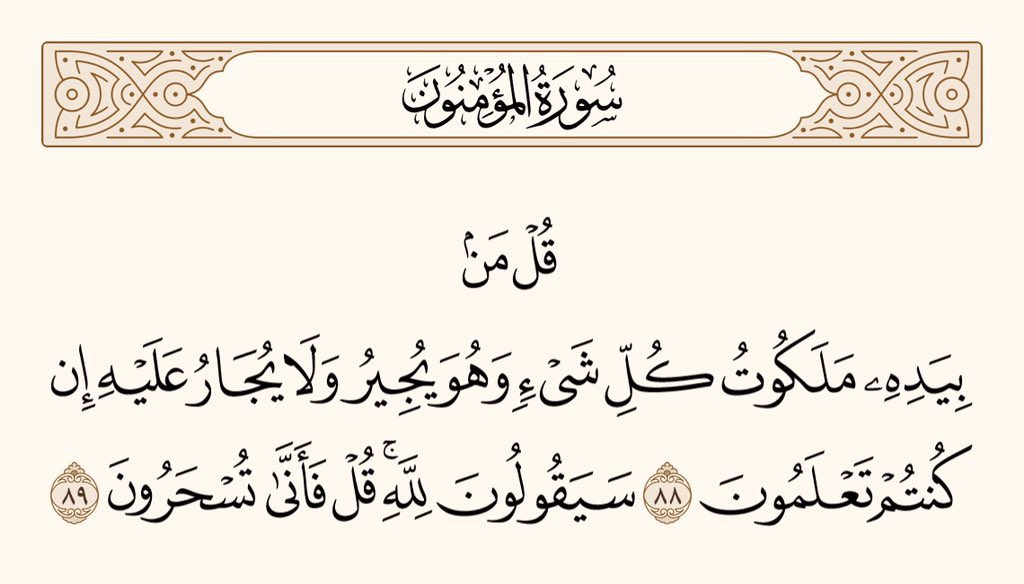 سُورَةُ المُؤۡمِنُونَ
قُلۡ مَنۢ
بِيَدِهِۦ مَلَكُوتُ كُلِّ شَيۡءٖ وَهُوَ يُجِيرُ وَلَا يُجَارُ عَلَيۡهِ إِن
كُنتُمۡ تَعۡلَمُونَ ٨٨ سَيَقُولُونَ لِلَّهِۚ قُلۡ فَأَنَّىٰ تُسۡحَرُونَ ٨٩